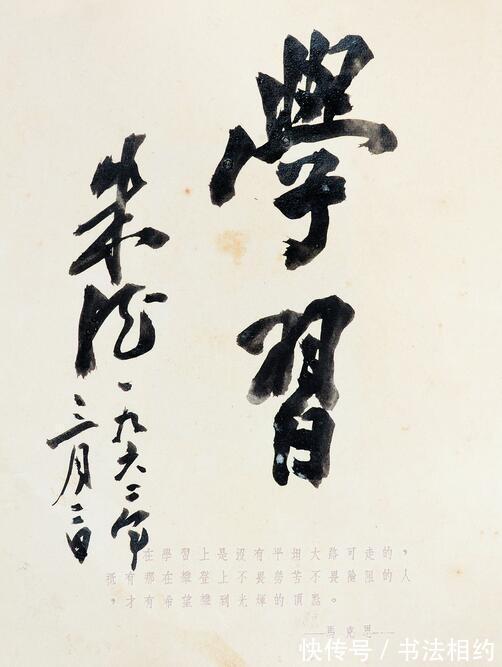 學習
朱德
一九六二年
三月二日
在學習上是沒有平坦大路可走的，
祇有那在攀登上不畏勞苦不畏險阻的人
，才有希望攀到光輝的頂點。
—馬克思—
快传号/书法相约